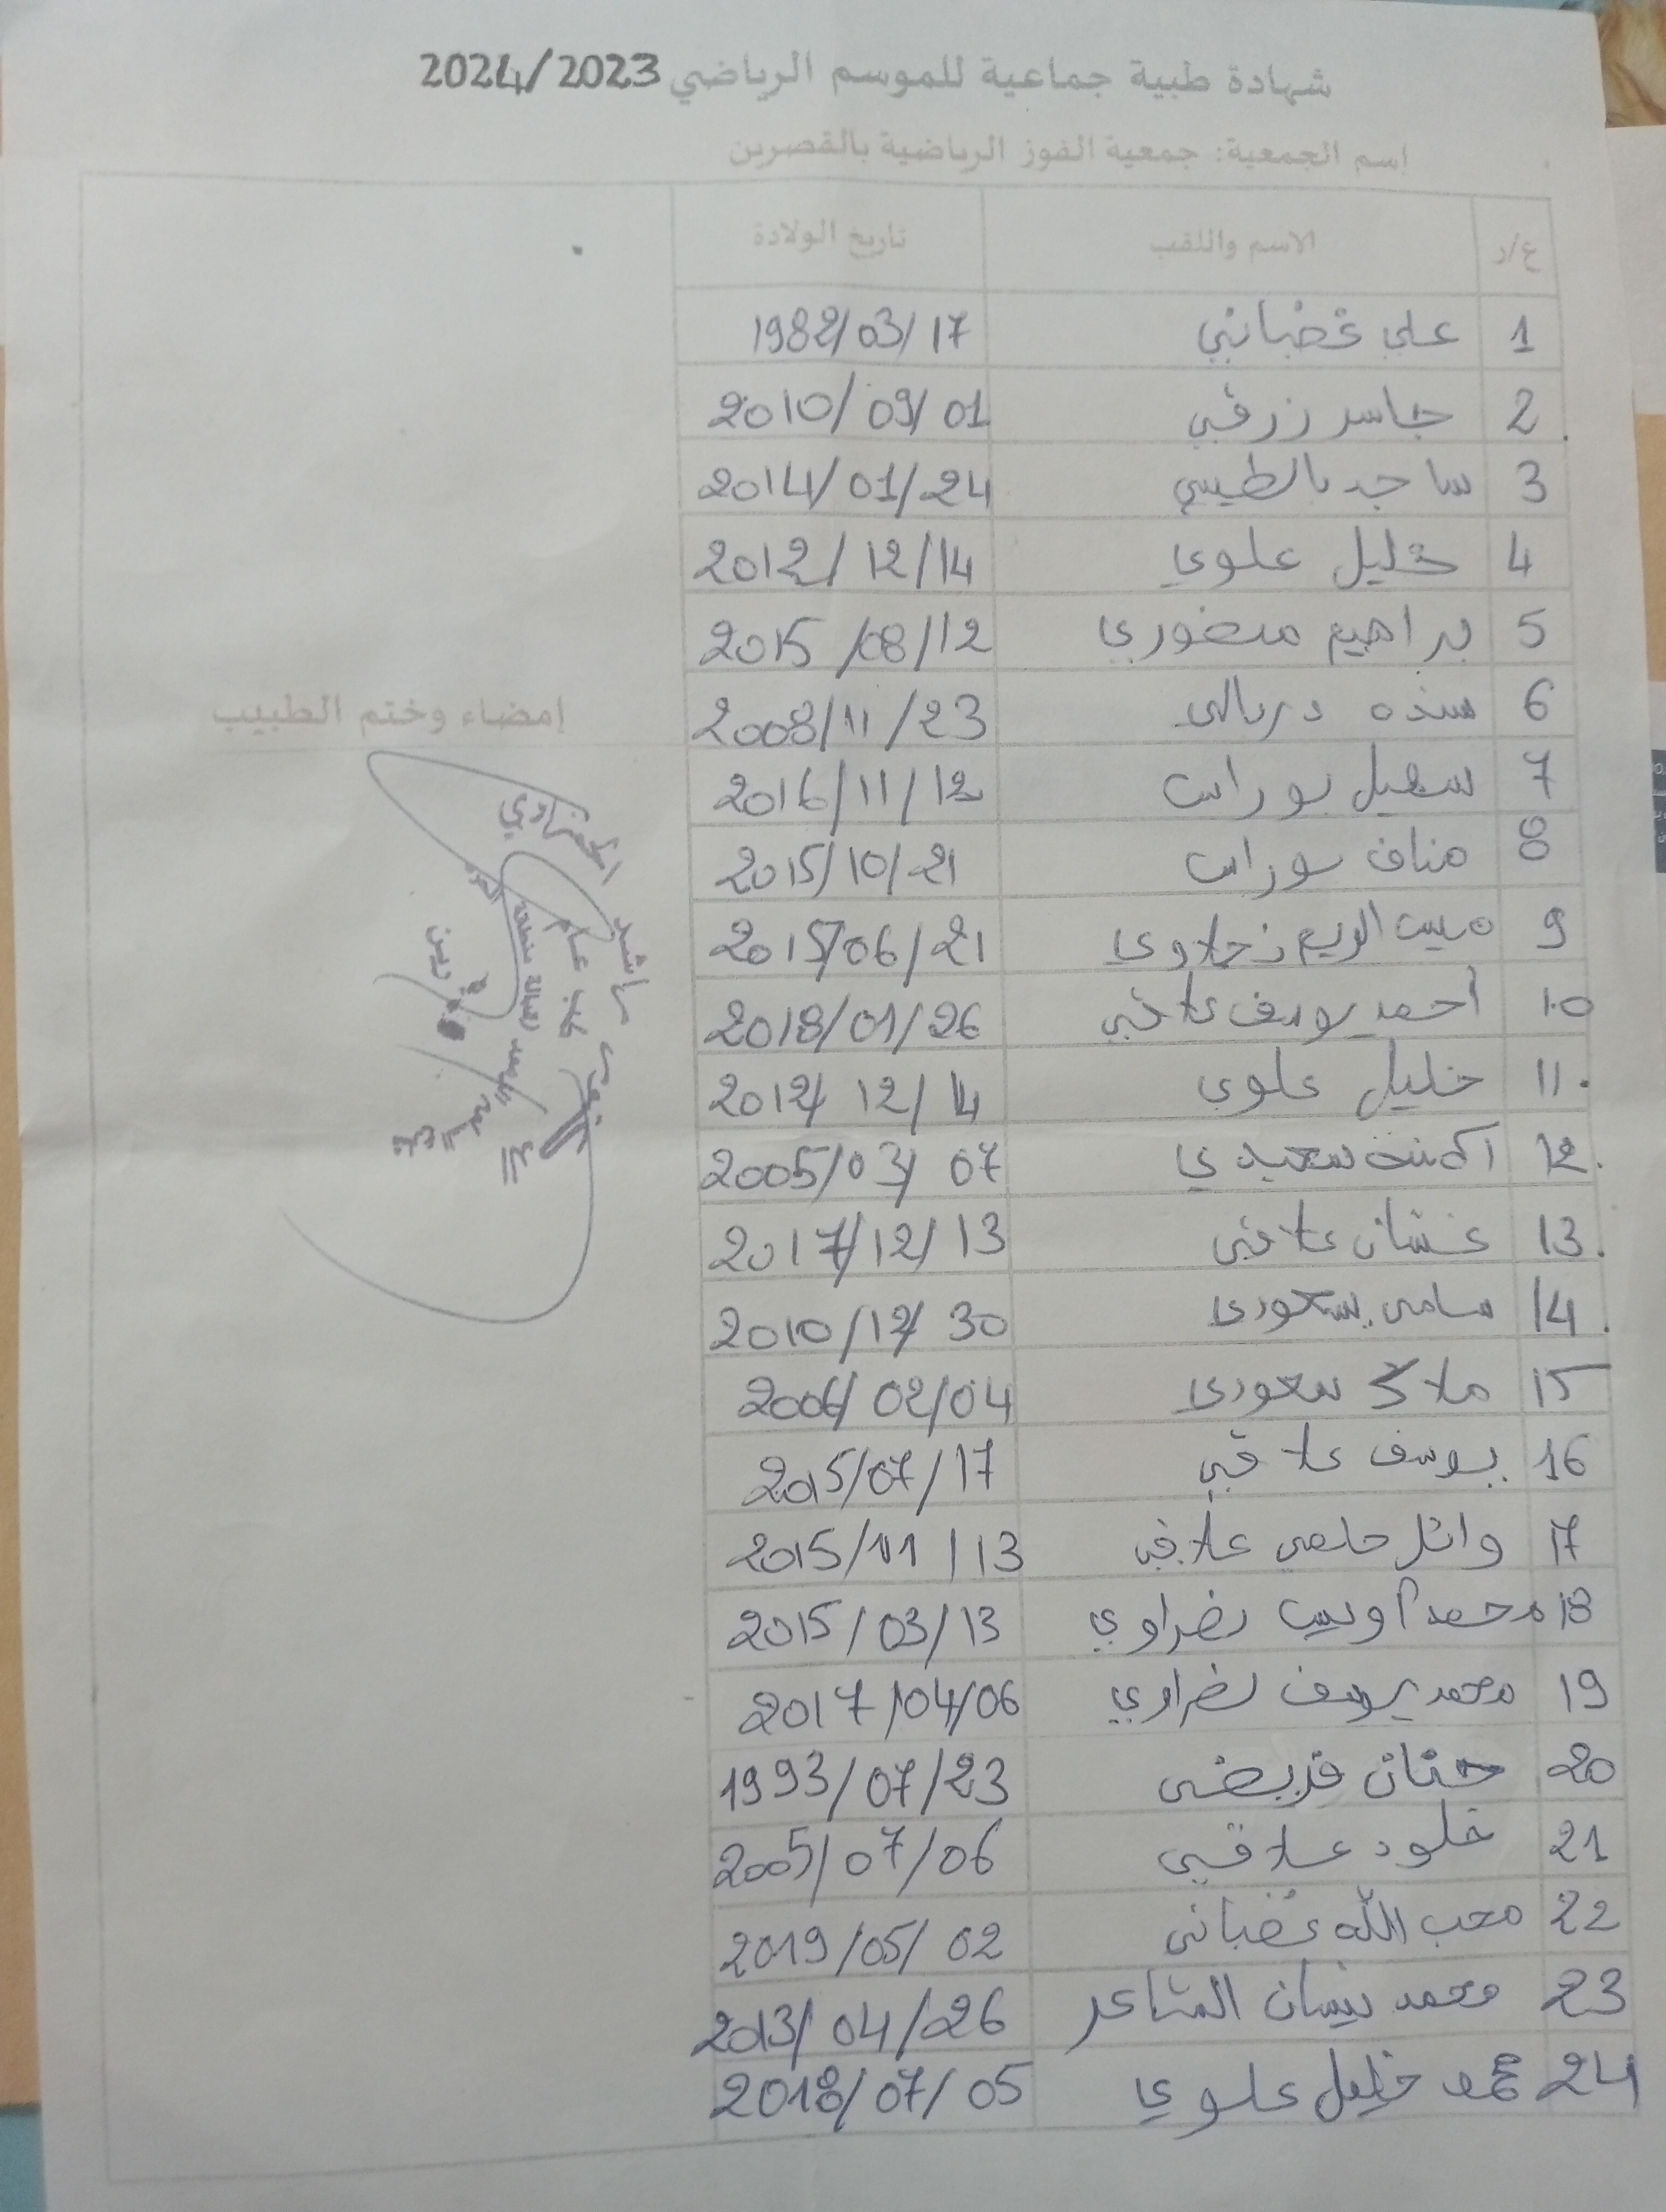 شهادة طبية جماعية للموسم الرياضي 2024/2023
إسم الجمعية: جمعية الفوز الرياضية بالقصرين
ع/ر الاسم واللقب تاريخ الولادة
1 علي غضباني 1982/03/17
2 جاسر زرقي 2010/09/01
3 ساجد بالطيبي 2014/01/24
4 خليل علوي 2012/12/14
5 براهيم منصوري 2015/08/12
6 دربالي 2008/11/23
إمضاء وختم الطبيب
7 سهيل بوراس 2016/11/12
8 مناف بوراس 2015/10/21
9 2015/06/21
10 أحمد يوسف علاقي 2018/01/26
11 خليل علوي 2012/12/14
12 سعيدي 2005/03/07
13 غسان علاقي 2017/12/13
14 سامي 2010/12/30
15 ملاك 2006/02/04
16 يوسف علاقي 2015/07/17
17 وائل حلمي علاقي 2015/11/13
18 محمد أويس نصراوي 2015/03/13
19 محمد يوسف نصراوي 2017/04/06
20 حنان قريضي 1993/07/23
21 خلود علاقي 2005/07/06
22 محب الله غضباني 2019/05/02
23 محمد نيسان الشاعر 2013/04/26
24 محمد خليل علوي 2018/07/05